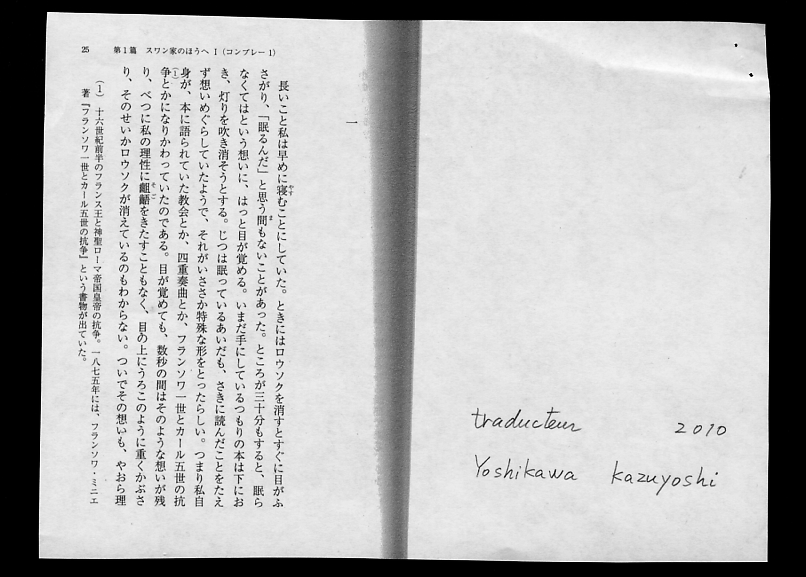 25 第1篇 スワン家のほうへ Ⅰ (コンブレー 1)
一
長いこと私は早めに寝むことにしていた。ときにはロウソクを消すとすぐに目がふ
やす
さがり、「眠るんだ」と思う間もないことがあった。ところが三十分もすると、眠ら
ま
なくてはという想いに、はっと目が覚める。いまだ手にしているつもりの本は下にお
き、灯りを吹き消そうとする。じつは眠っているあいだも、さきに読んだことをたえ
ず想いめぐらしていたようで、それがいささか特殊な形をとったらしい。つまり私自
身が、本に語られていた教会とか、四重奏曲とか、フランソワ一世とカール五世の抗
争とかになりかわっていたのである。目が覚めても、数秒の間はそのような想いが残
(1)
り、べつに私の理性に齟齬をきたすこともなく、目の上にうろこのように重くかぶさ
そご
り、そのせいかロウソクが消えているのもわからない。ついでその想いも、やおら理
(1) 十六世紀前半のフランス王と神聖ローマ帝国皇帝の抗争。一八七五年には、フランソワ・ミニエ
著『フランソワ一世とカール五世の抗争』という書物が出ていた。
traducteur 2010
Yoshikawa kazuyoshi